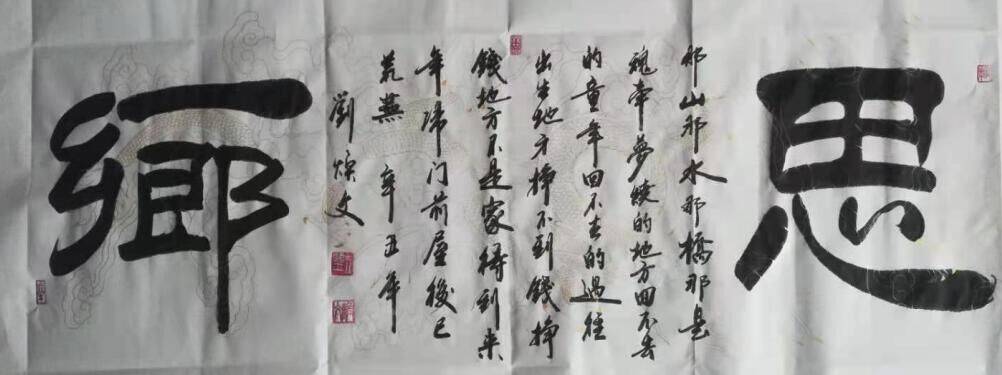 思
那山那水那橋那是
魂牵夢绕的地方回不去
的童年回不去的過往
出生地方挣不到錢挣
錢地方不是家待到来
年歸门前屋後已
荒蕪 辛丑年
劉煥文
鄉